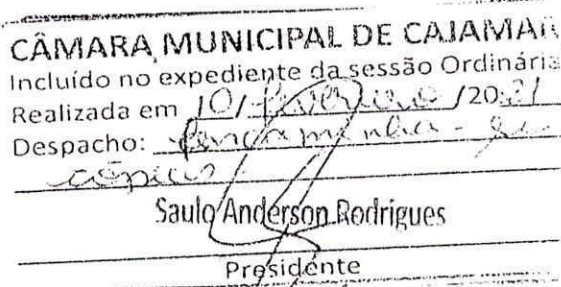 CÂMARA MUNICIPAL DE CAJAMAR
Incluído no expediente da sessão Ordinária
Realizada em 10/ fevereiro /2021
Despacho: Encaminha-se
cópias
Saulo Anderson Rodrigues
Presidente